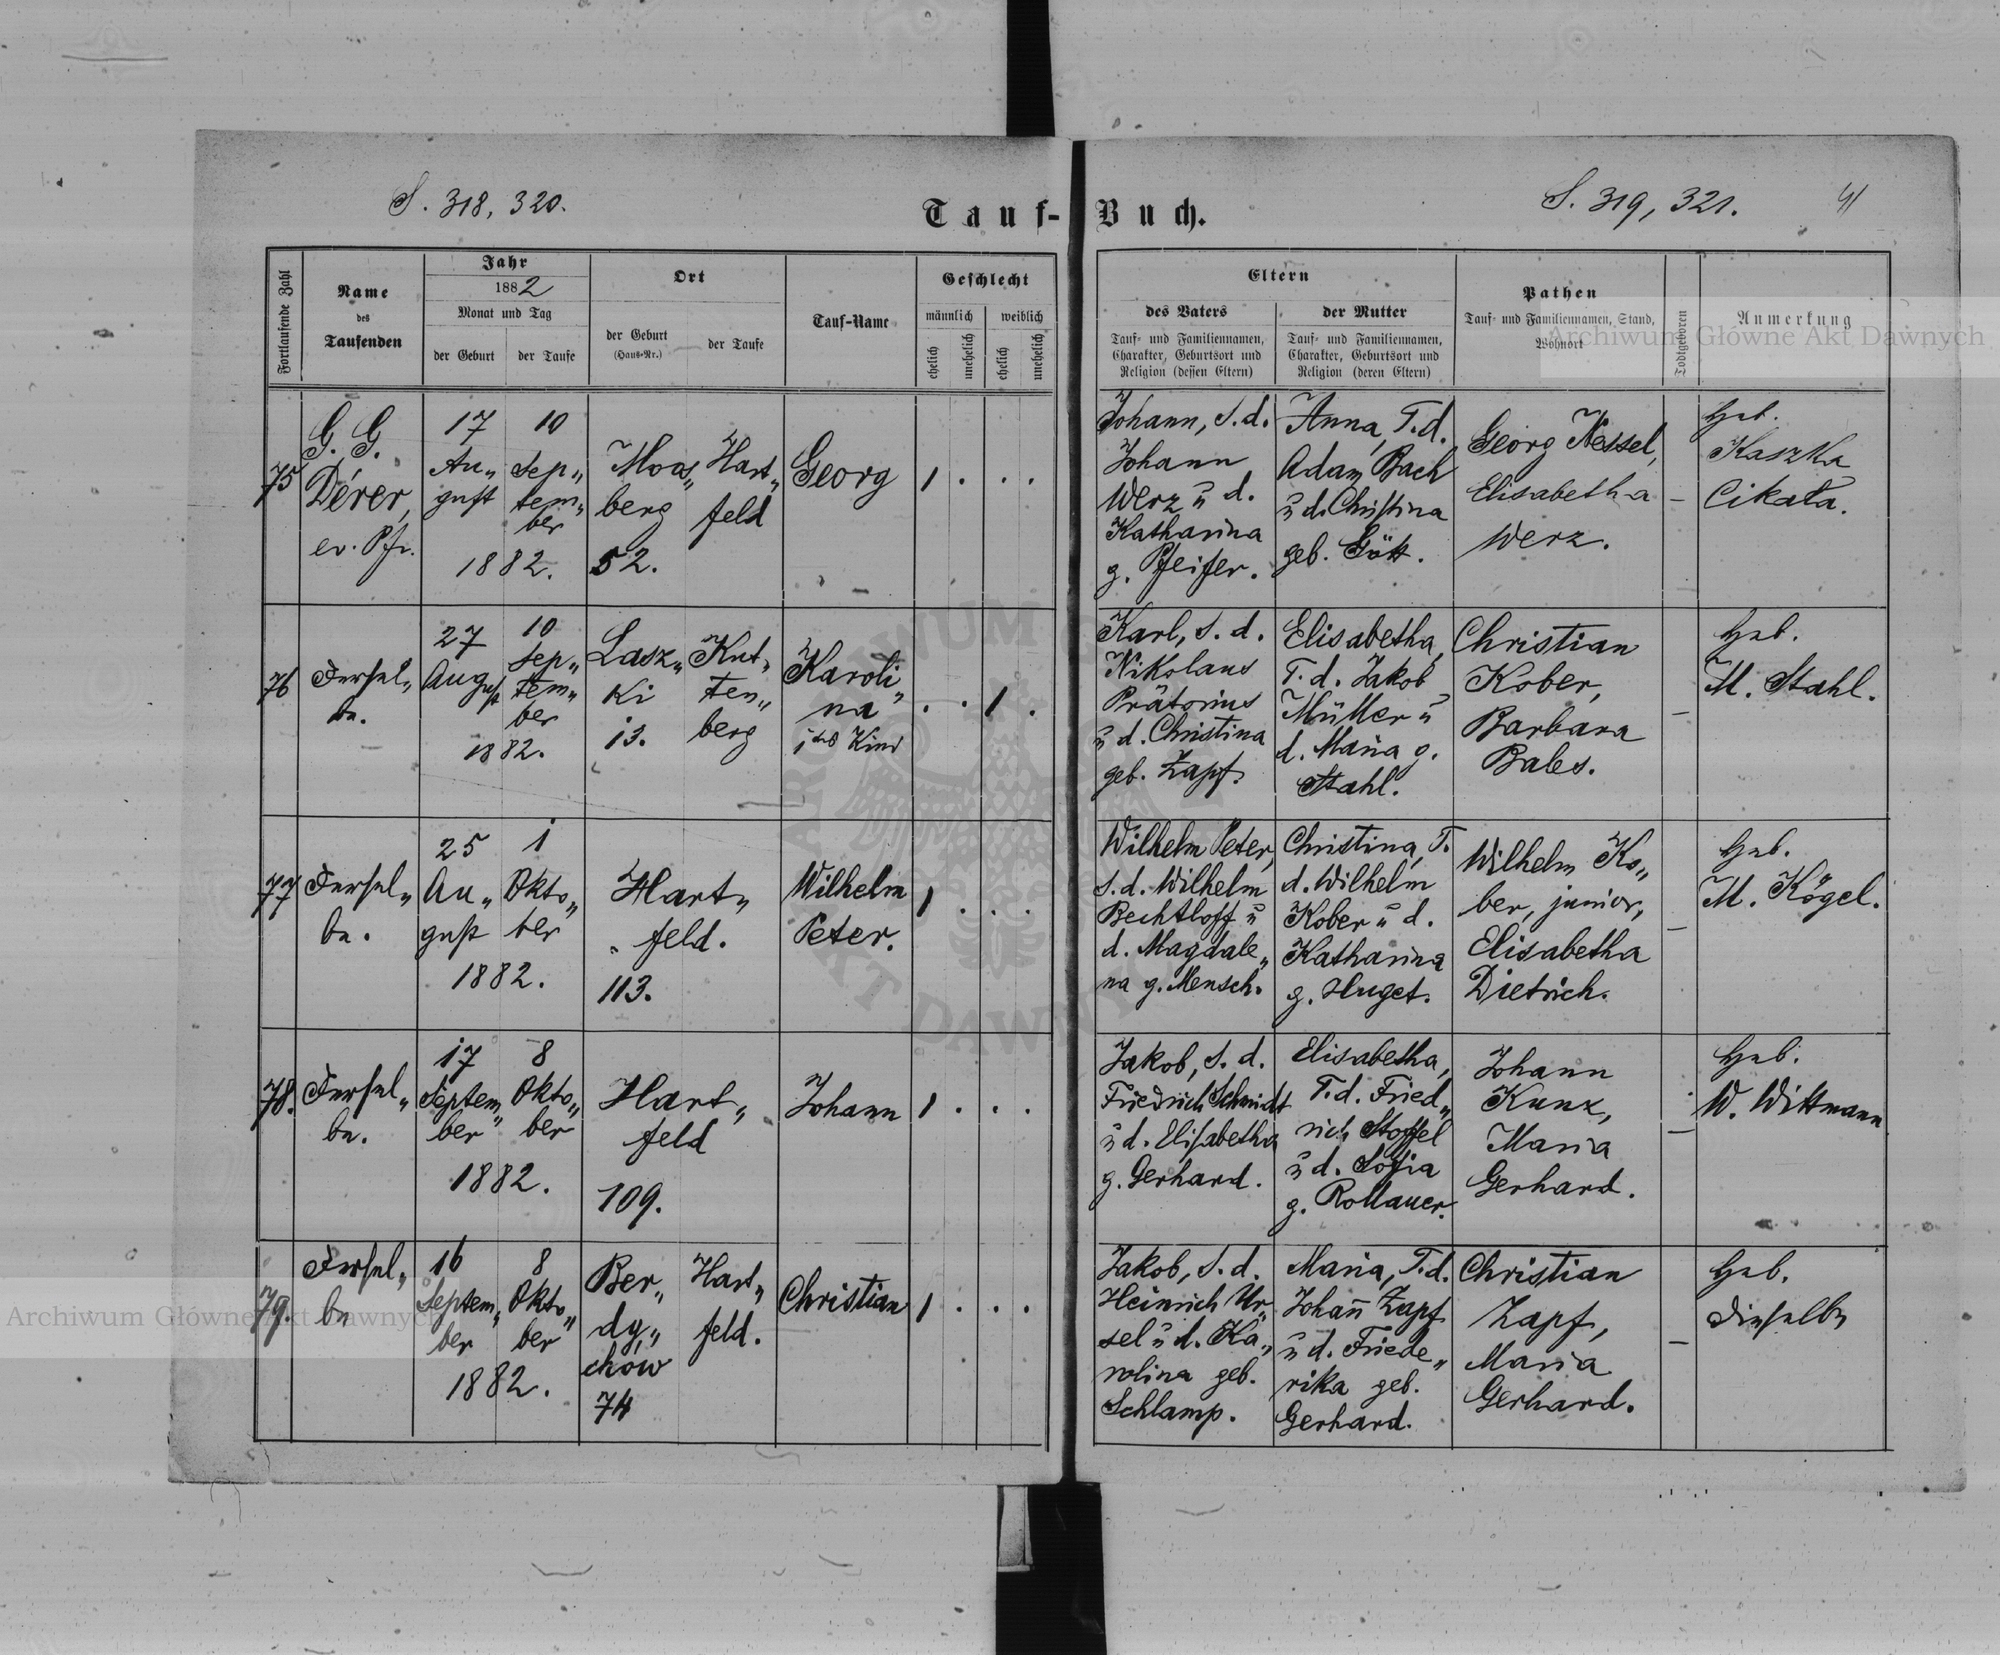 S. 318, 320.
S. 319, 321.
41
Tauf-Buch.
Fortlaufende Zahl
Name
des
Taufenden
Jahr
1882
Monat und Tag
der Geburt
der Taufe
Ort
der Geburt
(Haus-Nr.)
der Taufe
Tauf-Name
Geschlecht
männlich
weiblich
ehelich
unehelich
ehelich
unehelich
Eltern
des Vaters
Tauf- und Familiennamen,
Charakter, Geburtsort und
Religion (dessen Eltern)
der Mutter
Tauf- und Familiennamen,
Charakter, Geburtsort und
Religion (deren Eltern)
Pathen
Tauf- und Familiennamen, Stand,
Wohnort
Todtgeboren
Anmerkung
75
G. G.
Dérer,
ev. Pfr.
17
Au„
gust
10
Sep„
tem„
ber
1882.
Moos„
berg
52.
Hart„
feld
Georg
1 . . .
Johann, S. d.
Johann
Werz ü d.
Katharina
g. Pfeifer.
Anna, T. d.
Adam Bach
ü d. Christina
geb. Gött.
Georg Nessel,
Elisabetha
Werz.
–
Heb.
Kaszka
Cikata.
76
Dersel„
be.
27
August
10
Sep„
tem„
ber
1882.
Lasz„
ki
13.
Kut„
ten„
berg
Karoli„
na
1tes Kind
. . 1 .
Karl, S. d.
Nikolaus
Prätorius
ü d. Christina
geb. Zapf.
Elisabetha,
T. d. Jakob
Müller ü
d. Maria g.
Stahl.
Christian
Kober,
Barbara
Bales.
–
Heb.
M. Stahl.
77
Dersel„
be.
25
Au„
gust
1
Okto„
ber
1882.
Hart„
feld.
113.
Wilhelm
Peter.
1 . . .
Wilhelm Peter,
S. d. Wilhelm
Bechtloff ü
d. Magdale„
na g. Mensch.
Christina, T.
d. Wilhelm
Kober ü d.
Katharina
g. Huget.
Wilhelm Ko„
ber, junior,
Elisabetha
Dietrich.
–
Heb.
M. Kögel.
78.
Dersel„
be.
17
Septem„
ber
8
Okto„
ber
1882.
Hart„
feld
109.
Johann
1 . . .
Jakob, S. d.
Friedrich Schmidt
ü d. Elisabetha
g. Gerhard.
Elisabetha,
T. d. Fried„
rich Stoffel
ü d. Sofia
g. Rollauer.
Johann
Kunz,
Maria
Gerhard.
–
Heb.
W. Wittmann
79.
Dersel„
be
16
Septem„
ber
8
Okto„
ber
1882.
Ber„
dy„
chów
74
Hart„
feld.
Christian
1 . . .
Jakob, S. d.
Heinrich Ur„
sel ü d. Ka„
rolina geb.
Schlamp.
Maria, T. d.
Johañ Zapf
ü d. Friede„
rika geb.
Gerhard.
Christian
Zapf,
Maria
Gerhard.
–
Heb.
dieselbe
Archiwum Główne Akt Dawnych
Archiwum Główne Akt Dawnych
ARCHIWUM
AKT DAWNYCH